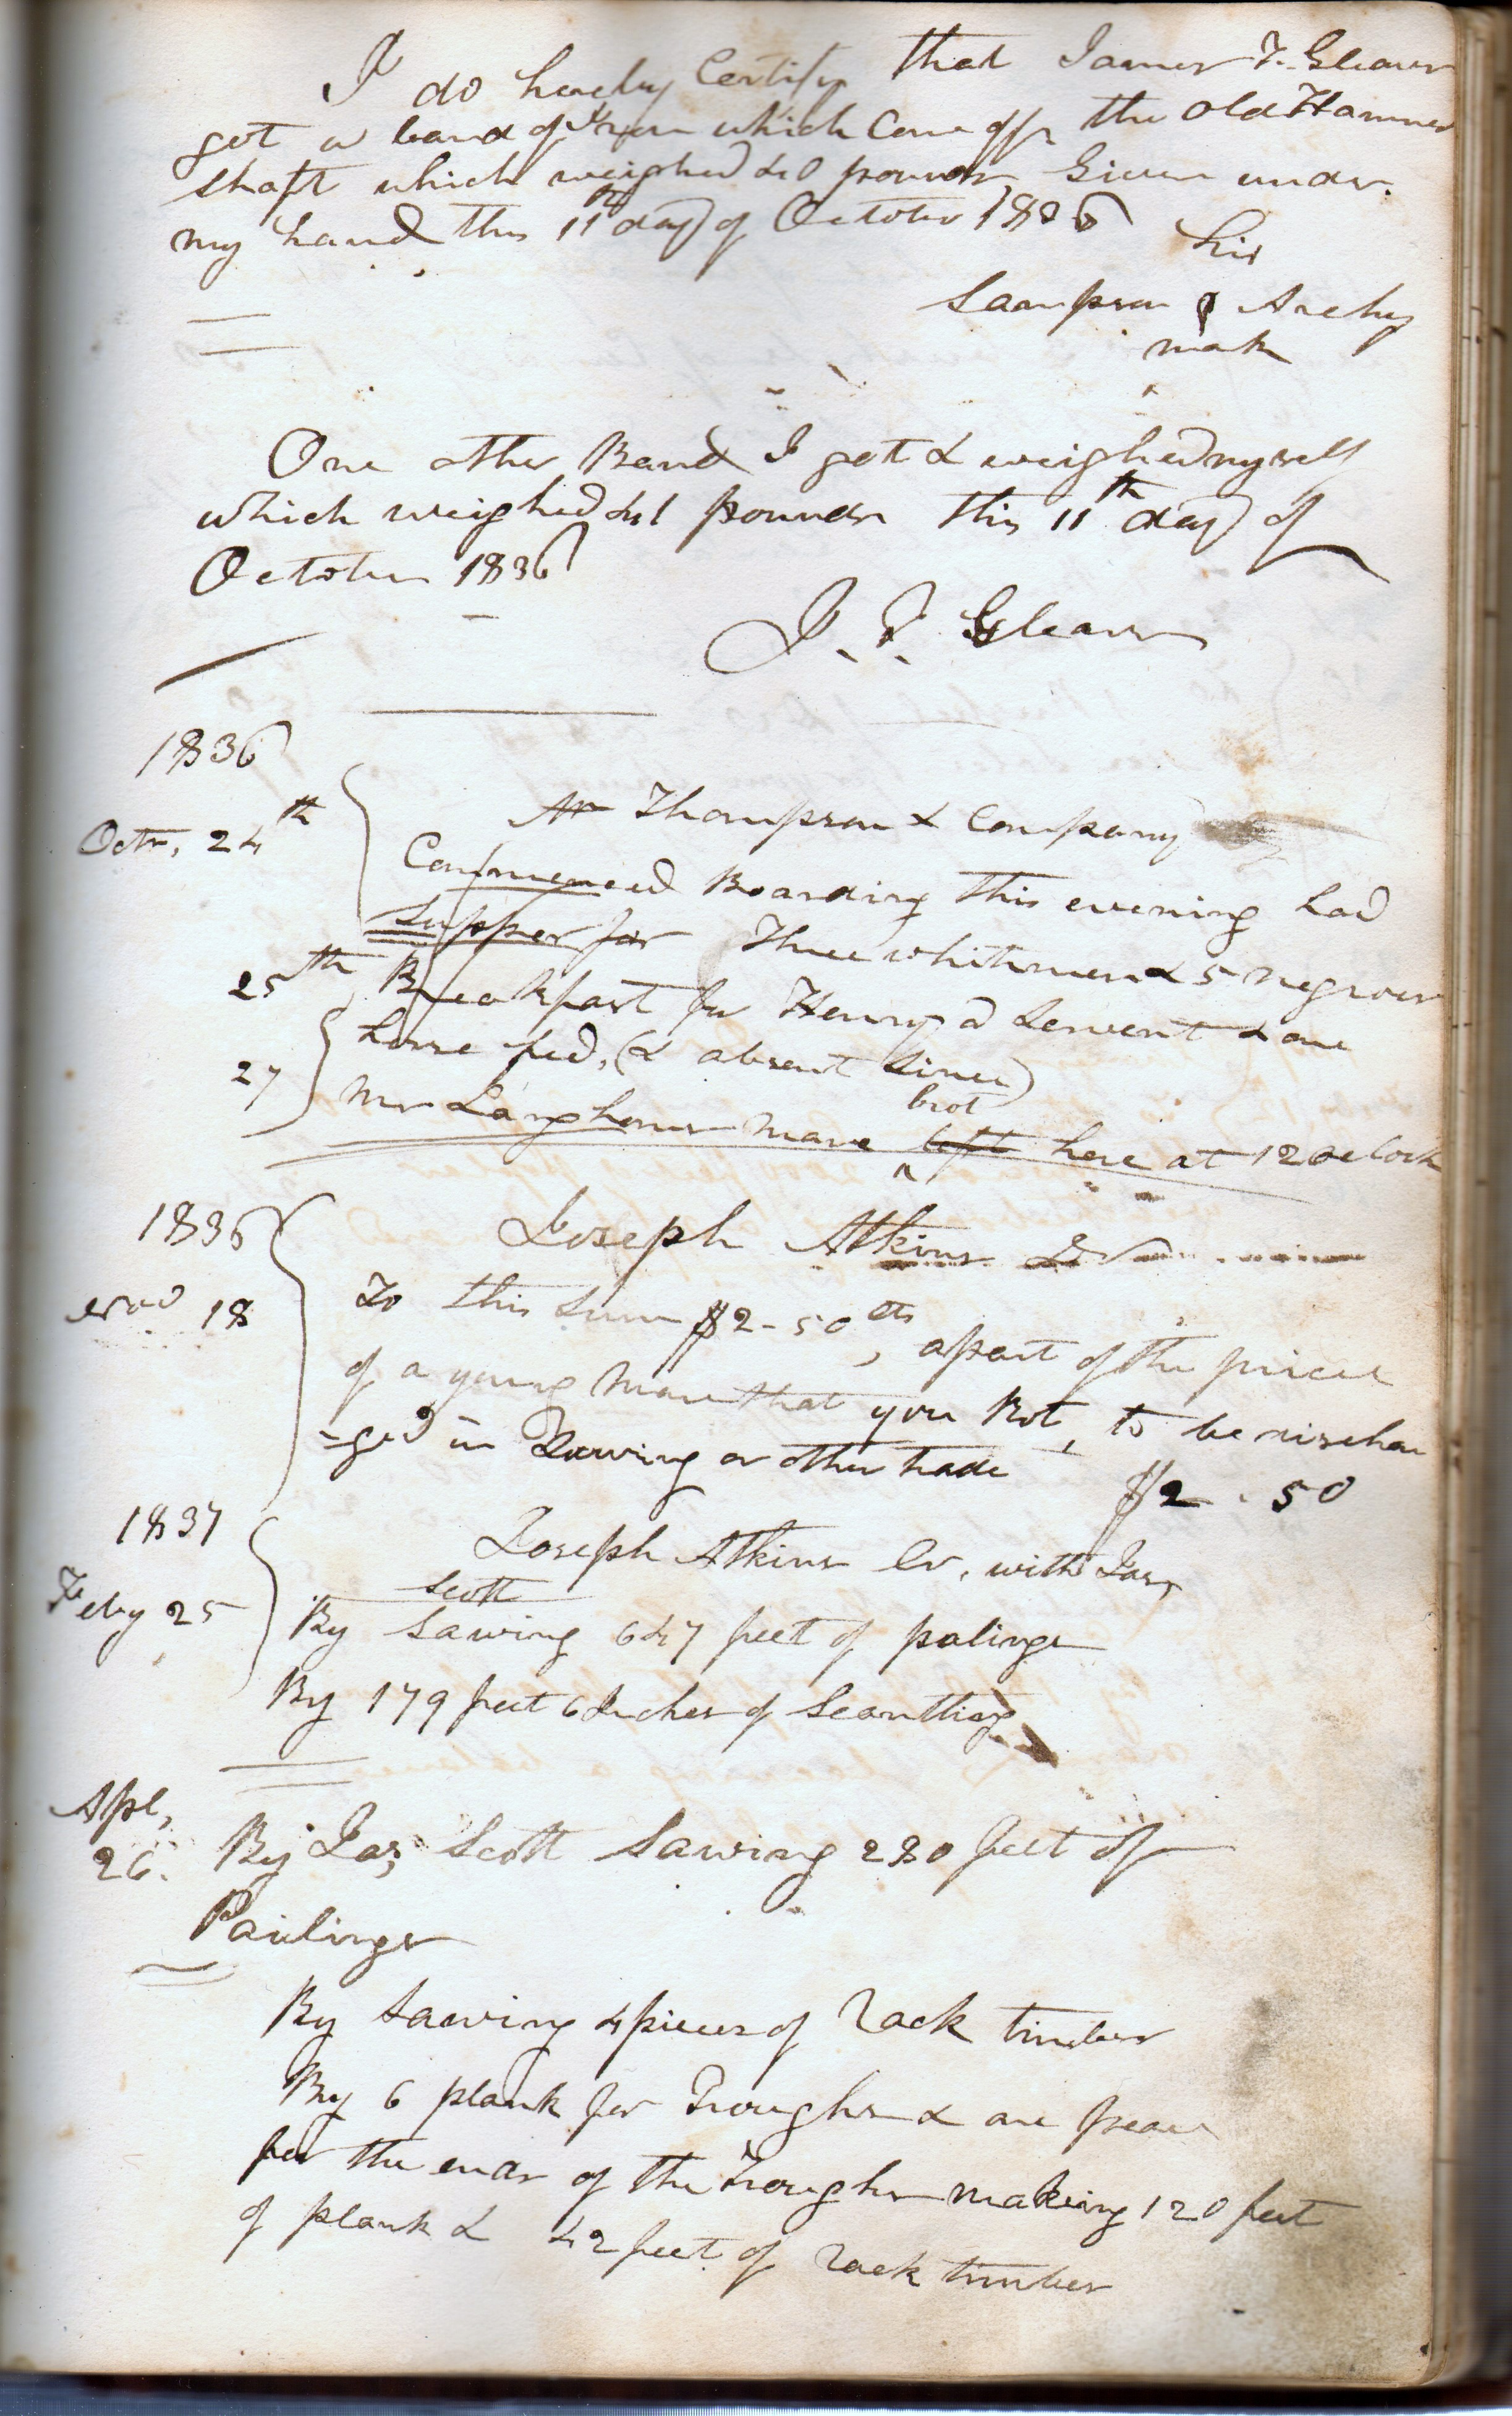 I do hereby Certify that James T. Gleaves
got a band of Iron which Came off the old Hammer
shaft which weighed 40 pounds, Given under
my hand this 11th day of October 1836
his
Sampson Archy
mark
One other Band I got & weighed myself
which weighed 41 pounds this 11th day of
October 1836
J. T. Gleaves
1836
Octr. 24th
Mr Thompson & Company
Commenced Boarding this evening had
supper for Three whitemen & 5 negroes
25th Breakfast for Henry a Servent & one
horse fed, (& absent since)
27 Mr Langhorns mare left brot here at 12 Oclock
1836 Joseph Atkins Dr
Nov 18 To this sum $2-50 cts, apart of the price
of a young mare that you Bot, to be discha
-ged in Sawing or other trade
$2.50
1837 Joseph Atkins Cr, with Jas,
Scott
Feby 25 By Sawing 647 feet of palings
By 179 feet 6 Inches of Scantling
Apl,
26. By Jas, Scott Sawing 280 feet of
Pailings
By Sawing 4 pieces of Rack timber
By 6 plank for Troughs & one peace
for the ends of the Troughs making 120 feet
of plank & 42 feet of rack timber